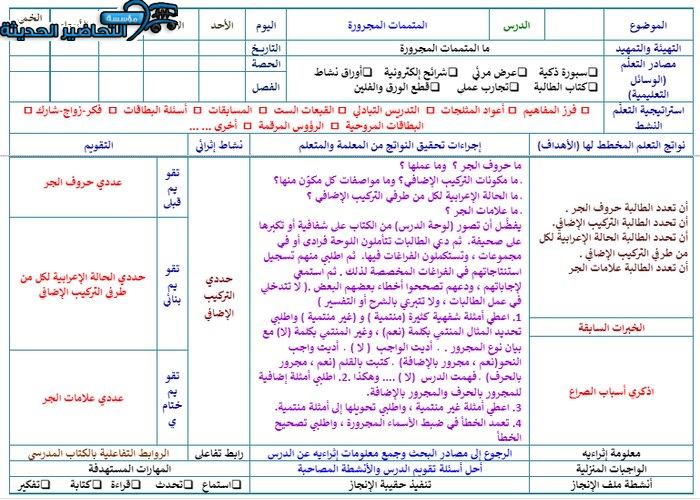 مؤسسة
التحاضير الحديثة
الموضوع
الدرس
المتممات المجرورة
اليوم
الأحد
التهيئة والتمهيد
ما المتممات المجرورة
التاريخ
مصادر التعلّم
(الوسائل
التعليمية)
سبورة ذكية □عرض مرئي □شرائح إلكترونية □أوراق نشاط
□كتاب الطالبة □تجارب عملى □قطع الورق والفلين
الحصة
الفصل
استراتيجية التعلّم
النشط
□ فرز المفاهيم □ أعواد المثلجات □ التدريس التبادلي □ القبعات الست □ المسابقات □ أسئلة البطاقات □ فكر-زواج-شارك □
البطاقات المروحية □ الرؤوس المرقمة □ أخرى ... ...
نواتج التعلم المخطط لها (الأهداف)
إجراءات تحقيق النواتج من المعلمة والمتعلم
نشاط إثرائي
التقويم
أن تعدد الطالبة حروف الجر .
أن تحدد الطالبة التركيب الإضافي.
أن تحدد الطالبة الحالة الإعرابية لكل
من طرفي التركيب الإضافي .
أن تعدد الطالبة علامات الجر
الخبرات السابقة
اذكري أسباب الصراع
ما حروف الجر ؟ وما عملها ؟
. ما مكونات التركيب الإضافي؟ وما مواصفات كل مكوّن منها؟
. ما الحالة الإعرابية لكل من طرفي التركيب الإضافي ؟
. ما علامات الجر ؟
يفضَّل أن تصور (لوحة الدرس) من الكتاب على شفافية أو تكبرها
على صحيفة. ثم دعي الطالبات تتأملون اللوحة فرادى أو في
مجموعات ، وتستكملون الفراغات فيها. ثم اطلبي منهم تسجيل
استنتاجاتهم في الفراغات المخصصة لذلك . ثم استمعي
لإجاباتهم ، ودعهم تصححوا أخطاء بعضهم البعض .( لا تتدخلي
في عمل الطالبات ، ولا تتبرعي بالشرح أو التفسير )
1. اعطي أمثلة شفهية كثيرة (منتمية ) و (غير منتمية ) واطلبي
تحديد المثال المنتمي بكلمة (نعم) ، وغير المنتمي بكلمة (لا) مع
بيان نوع المجرور . . أديت الواجب ( لا ) . أديت واجب
النحو(نعم ، مجرور بالإضافة) . كتبت بالقلم (نعم ، مجرور
بالحرف) . فهمت الدرس (لا ) .... وهكذا .2. اطلبي أمثلة إضافية
للمجرور بالحرف والمجرور بالإضافة.
3. اعطي أمثلة غير منتمية ، واطلبي تحويلها إلى أمثلة منتمية.
4. تعمد الخطأ في ضبط الأسماء المجرورة ، واطلبي تصحيح
الخطأ
حددي
التركيب
الإضافي
تقو
يم
قبلى
عددي حروف الجر
تقو
يم
بنائى
حددي الحالة الإعرابية لكل من
طرفي التركيب الإضافي
تقو
يم
ختام
ي
عددي علامات الجر
معلومة إثراءيه
الرجوع إلى مصادر البحث وجمع معلومات إثراءيه عن الدرس
رابط تفاعلى
الروابط التفاعلية بالكتاب المدرسي
الواجبات المنزلية
أحل أسئلة تقويم الدرس والأنشطة المصاحبة
المهارات المستهدفة
أنشطة ملف الإنجاز
تنفيذ حقيبة الإنجاز
□استماع □تحدث □قراءة □كتابة □تفكير